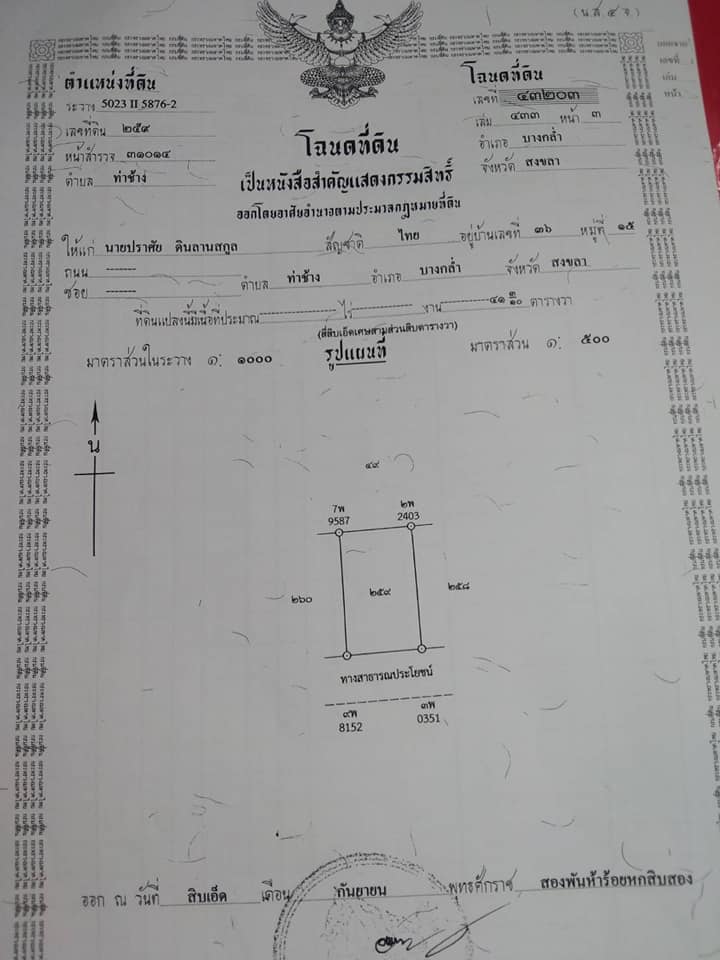 (น.ส.๔ จ.)
ตำแหน่งที่ดิน
ระวาง 5023 II 5876-2
เลขที่ดิน ๒๕๙
หน้าสำรวจ ๓๑๐๑๔
ตำบล ท่าช้าง
โฉนดที่ดิน
เลขที่ ๔๓๒๐๓
เล่ม ๔๓๓ หน้า ๓
อำเภอ บางกล่ำ
จังหวัด สงขลา
เลขที่
เล่ม
หน้า
โฉนดที่ดิน
เป็นหนังสือสำคัญแสดงกรรมสิทธิ์
ออกโดยอาศัยอำนาจตามประมวลกฎหมายที่ดิน
ให้แก่ นายปราศัย ดินลานสกูล สัญชาติ ไทย อยู่บ้านเลขที่ ๓๖ หมู่ที่ ๑๕
ถนน -------
ซอย ------- ตำบล ท่าช้าง อำเภอ บางกล่ำ จังหวัด สงขลา
ที่ดินแปลงนี้มีเนื้อที่ประมาณ ไร่ งาน ๔๑ ๓/๑๐ ตารางวา
รูปแผนที่
มาตราส่วนในระวาง ๑: ๑๐๐๐
มาตราส่วน ๑: ๕๐๐
น
๔๙
7พ
9587
๒พ
2403
๒๖๐
๒๕๙
๒๕๘
ทางสาธารณประโยชน์
๙พ
8152
๓พ
0351
ออก ณ วันที่ สิบเอ็ด เดือน กันยายน พุทธศักราช สองพันห้าร้อยหกสิบสอง